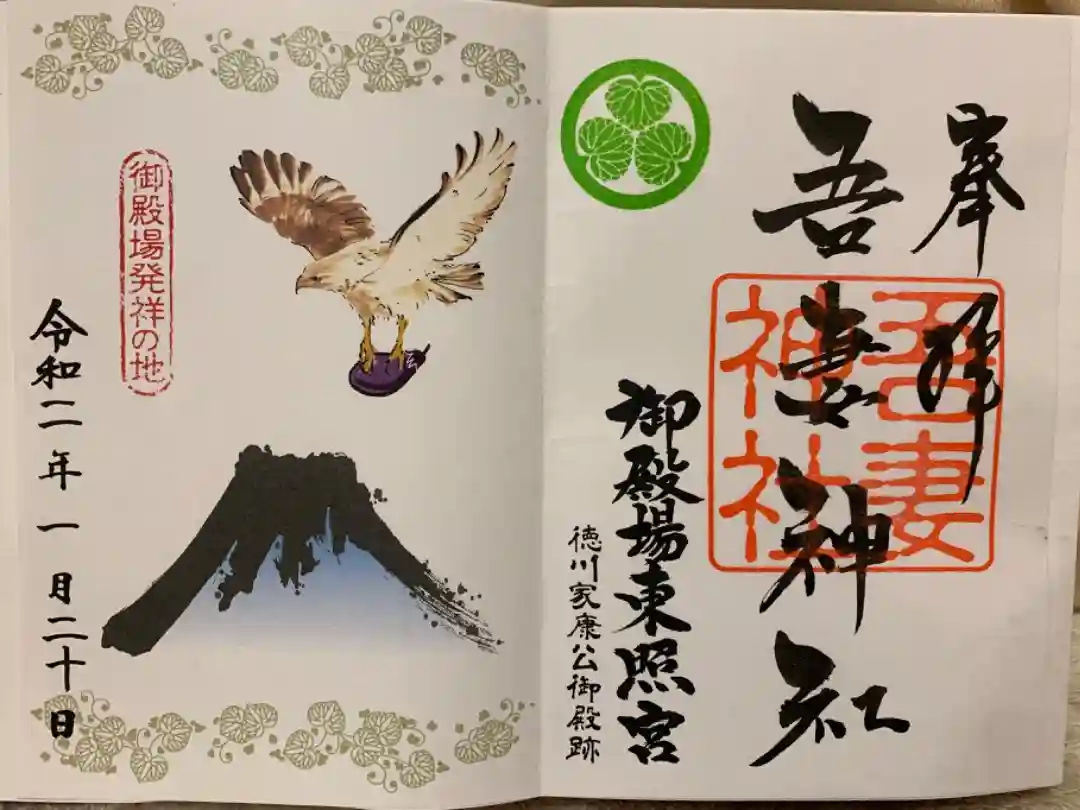 奉拝
吾妻神社
吾妻
神社
御殿場東照宮
徳川家康公御殿跡
御殿場発祥の地
令和二年一月二十日